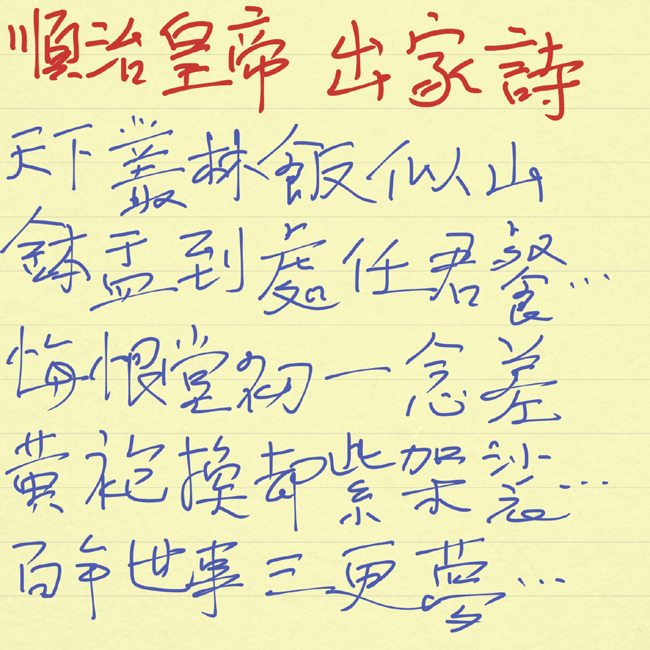 順治皇帝 出家詩
天下叢林飯似山
鉢盂到處任君餐...
悔恨堂初一念差
黃袍換却紫架裟...
百年世事三更夢...